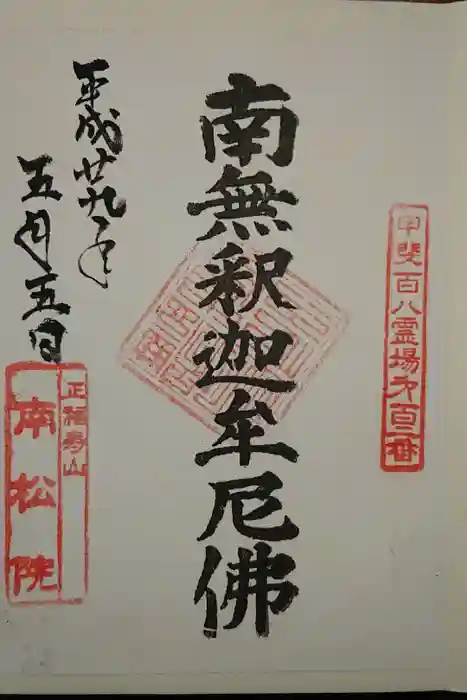 甲斐百八霊場第百三番
南無釈迦牟尼佛
平成廿九年
五月五日
正福寿山
南松院